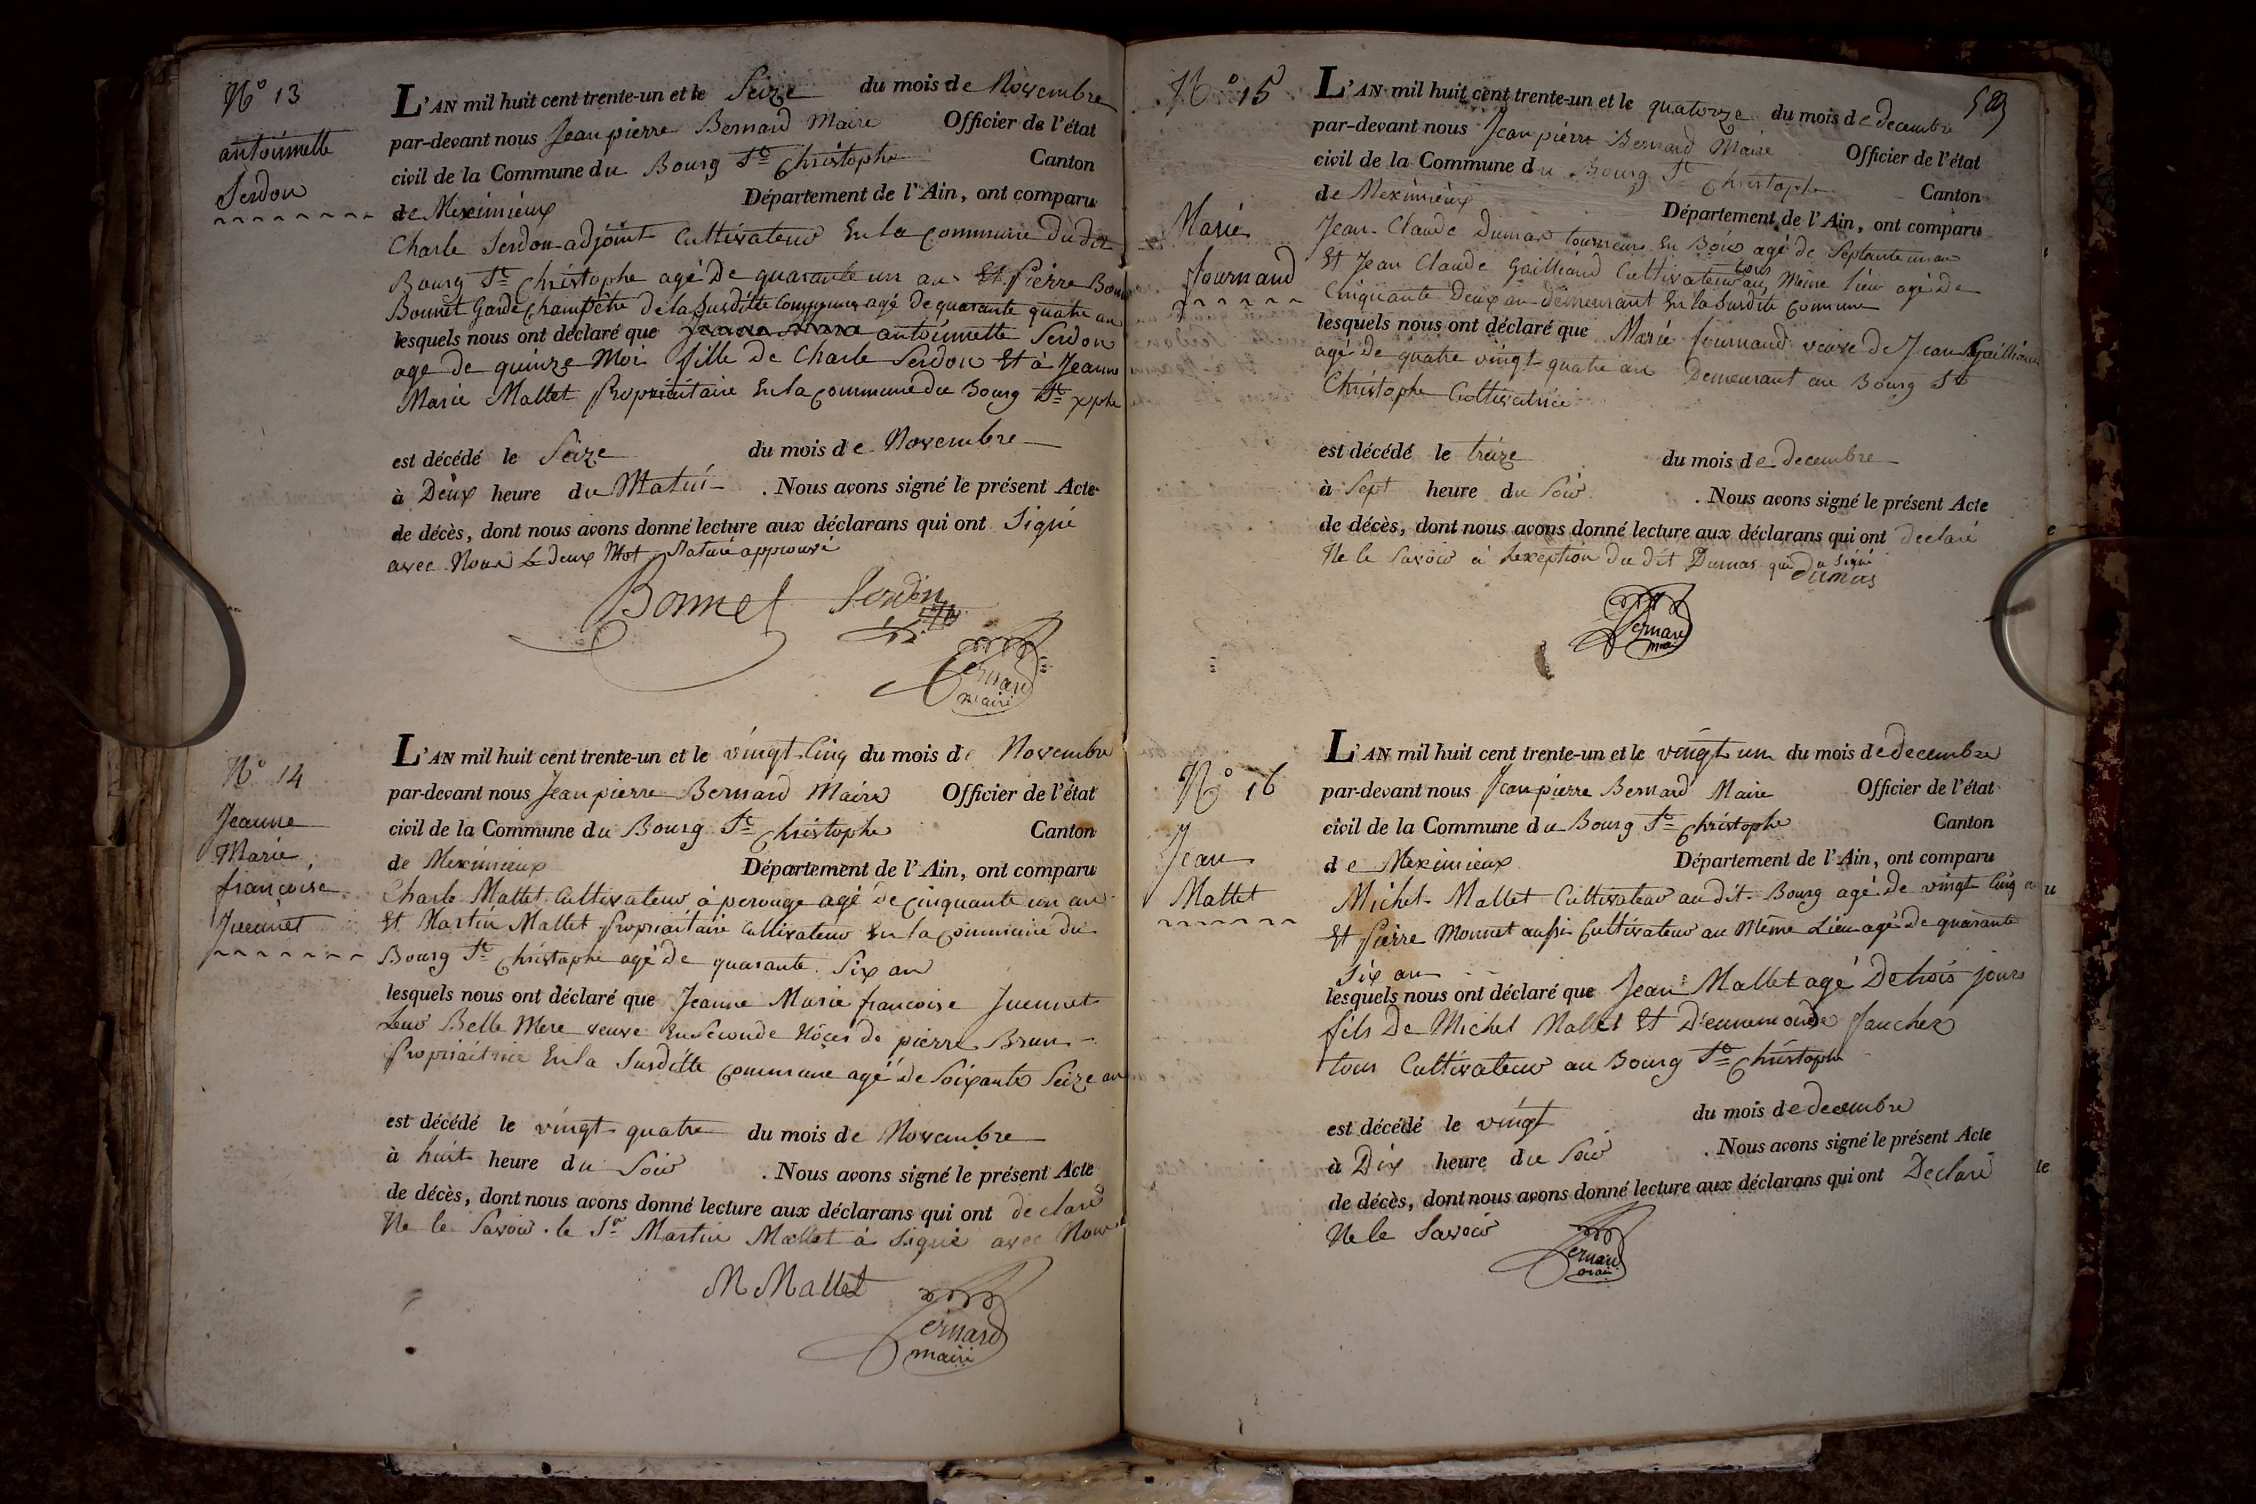 N° 13
antoinnette
Serdon
L'AN mil huit cent trente-un et le Seize du mois de Novembre
par-devant nous Jean pierre Bernard Maire Officier de l'état
civil de la Commune du Bourg St Christophe Canton
de Meximieux Département de l'Ain, ont comparu
Charle Serdon adjoint Cultivateur En la commune du dit
Bourg St Christophe agé De quarante un an Et Pierre
Bonnet Garde Champêtre de la Susditte Commune agé de quarante quatre an
lesquels nous ont déclaré que antoinnette Serdon
age de quinze Moi fille de Charle Serdon Et à Jeanne
Marie Mallet Propriétaire En la commune du Bourg St xphe
est décédé le Seize du mois de Novembre
à Deux heure du Matin . Nous avons signé le présent Acte
de décès, dont nous avons donné lecture aux déclarans qui ont Signé
avec Nous Le deux Mot Raturé approuvé
Bonnet Serdon
Bernard
maire
N° 14
Jeanne
Marie
françoise
Juennet
L'AN mil huit cent trente-un et le vingt-Cinq du mois de Novembre
par-devant nous Jean pierre Bernard Maire Officier de l'état
civil de la Commune du Bourg St Christophe Canton
de Meximieux Département de l'Ain, ont comparu
Charle Mallet Cultivateur à perouge agé de Cinquante un an
Et Martin Mallet Propriaitaire Cultivateur En la Commune du
Bourg St Christophe agé de quarante Six an
lesquels nous ont déclaré que Jeanne Marie francoise Juennet
Leur Belle Mere veuve En Seconde Nôces de pierre Brun
Propriaitrice En la Susditte Commune agé de Soixante Seize an
est décédé le vingt quatre du mois de Novembre
à huit heure du Soir . Nous avons signé le présent Acte
de décès, dont nous avons donné lecture aux déclarans qui ont declaré
Ne le Savoir . le Sr Martin Mallet à Signé avec Nous
M Mallet
Bernard
maire
N° 15
Marie
fournand
L'AN mil huit cent trente-un et le quatorze du mois de decembre
par-devant nous Jean pierre Bernard Maire Officier de l'état
civil de la Commune du Bourg St Christophe Canton
de Meximieux Département de l'Ain, ont comparu
Jean Claude Dumas tourneur En Bois agé de Septante un an
Et Jean Claude Gailliand Cultivateur tous au Même lieu agé De
Cinquante Deux an demeurant En la Susdite Commune
lesquels nous ont déclaré que Marie fournand veuve de Jean Gailliand
agé De quatre vingt quatre an Demeurant au Bourg St
Christophe Cultivatrice
est décédé le treize du mois de decembre
à Sept heure du Soir . Nous avons signé le présent Acte
de décès, dont nous avons donné lecture aux déclarans qui ont declaré
Ne le Savoir à L'exeption du dit Dumas qui a Signé
Dumas
Bernard
maire
N° 16
Jean
Mallet
L'AN mil huit cent trente-un et le vingt un du mois de decembre
par-devant nous Jean pierre Bernard Maire Officier de l'état
civil de la Commune du Bourg St Christophe Canton
de Meximieux Département de l'Ain, ont comparu
Michel Mallet Cultivateur au dit Bourg agé De vingt Cinq an
Et Pierre Monnet aussi Cultivateur au Même Lieu agé De quarante
Six an
lesquels nous ont déclaré que Jean Mallet agé De trois jours
fils De Michel Mallet Et D'ennemonde Faucher
tous Cultivateur au Bourg St Christophe
est décédé le vingt du mois de decembre
à Dix heure du Soir . Nous avons signé le présent Acte
de décès, dont nous avons donné lecture aux déclarans qui ont Declaré
Ne le Savoir
Bernard
maire